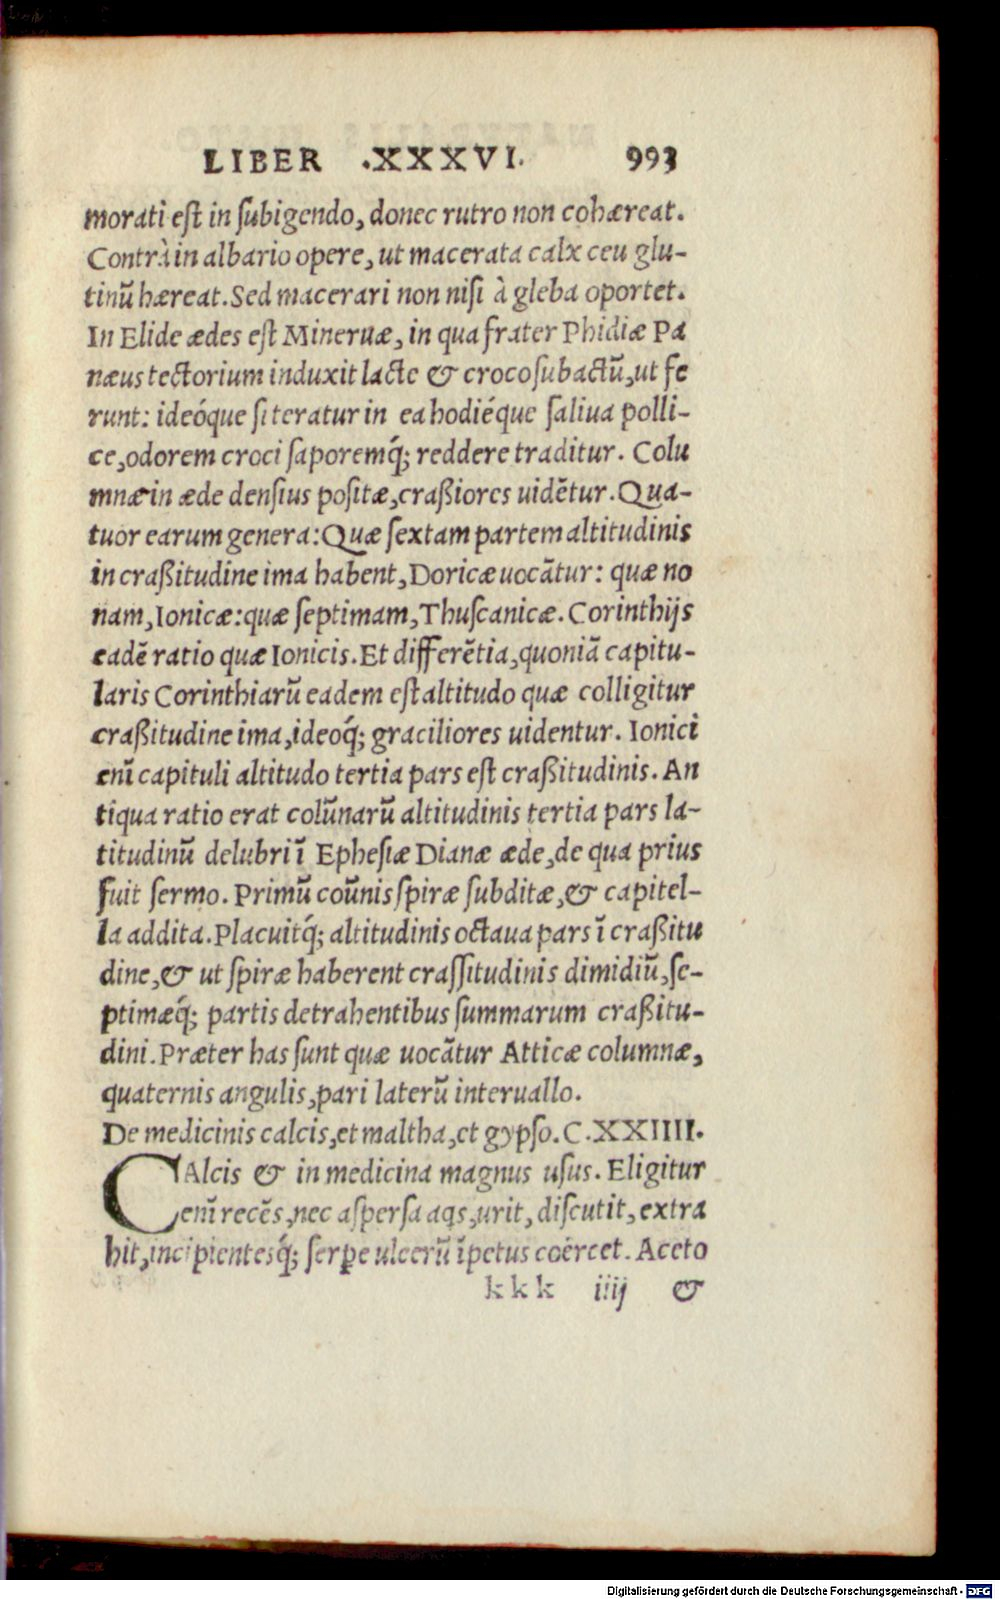 LIBER .XXXVI. 993
morati est in subigendo, donec rutro non cohæreat.
Contrà in albario opere, ut macerata calx ceu glu-
tinū hæreat. Sed macerari non nisi à gleba oportet.
In Elide ædes est Mineruæ, in qua frater Phidiæ Pa
næus tectorium induxit lacte & croco subactū, ut fe
runt: ideóque si teratur in ea hodiéque saliua polli-
ce, odorem croci saporemq́; reddere traditur. Colu
mnæ in æde densius positæ, craßiores uidẽtur. Qua-
tuor earum genera: Quæ sextam partem altitudinis
in craßitudine ima habent, Doricæ uocātur: quæ no
nam, Ionicæ: quæ septimam, Thuscanicæ. Corinthijs
eadẽ ratio quæ Ionicis. Et differẽtia, quoniā capitu-
laris Corinthiarū eadem est altitudo quæ colligitur
craßitudine ima, ideoq́; graciliores uidentur. Ionici
enī capituli altitudo tertia pars est craßitudinis. An
tiqua ratio erat colūnarū altitudinis tertia pars la-
titudinū delubri ī Ephesiæ Dianæ æde, de qua prius
fuit sermo. Primū coūnis spiræ subditæ, & capitel-
la addita. Placuitq́; altitudinis octaua pars ī craßitu
dine, & ut spiræ haberent crassitudinis dimidiū, se-
ptimæq́; partis detrahentibus summarum craßitu-
dini. Præter has sunt quæ uocātur Atticæ columnæ,
quaternis angulis, pari laterū interuallo.
De medicinis calcis, et maltha, et gypso. C. XXIIII.
CAlcis & in medicina magnus usus. Eligitur
enī recẽs, nec aspersa aqs, urit, discutit, extra
hit, incipientesq́; serpe ulcerū īpetus coërcet. Aceto
kkk iiij &
Digitalisierung gefördert durch die Deutsche Forschungsgemeinschaft - DFG